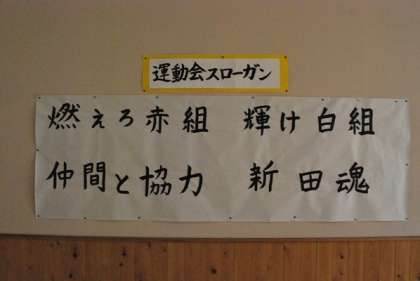 運動会スローガン
燃えろ赤組 輝け白組
仲間と協力 新田魂